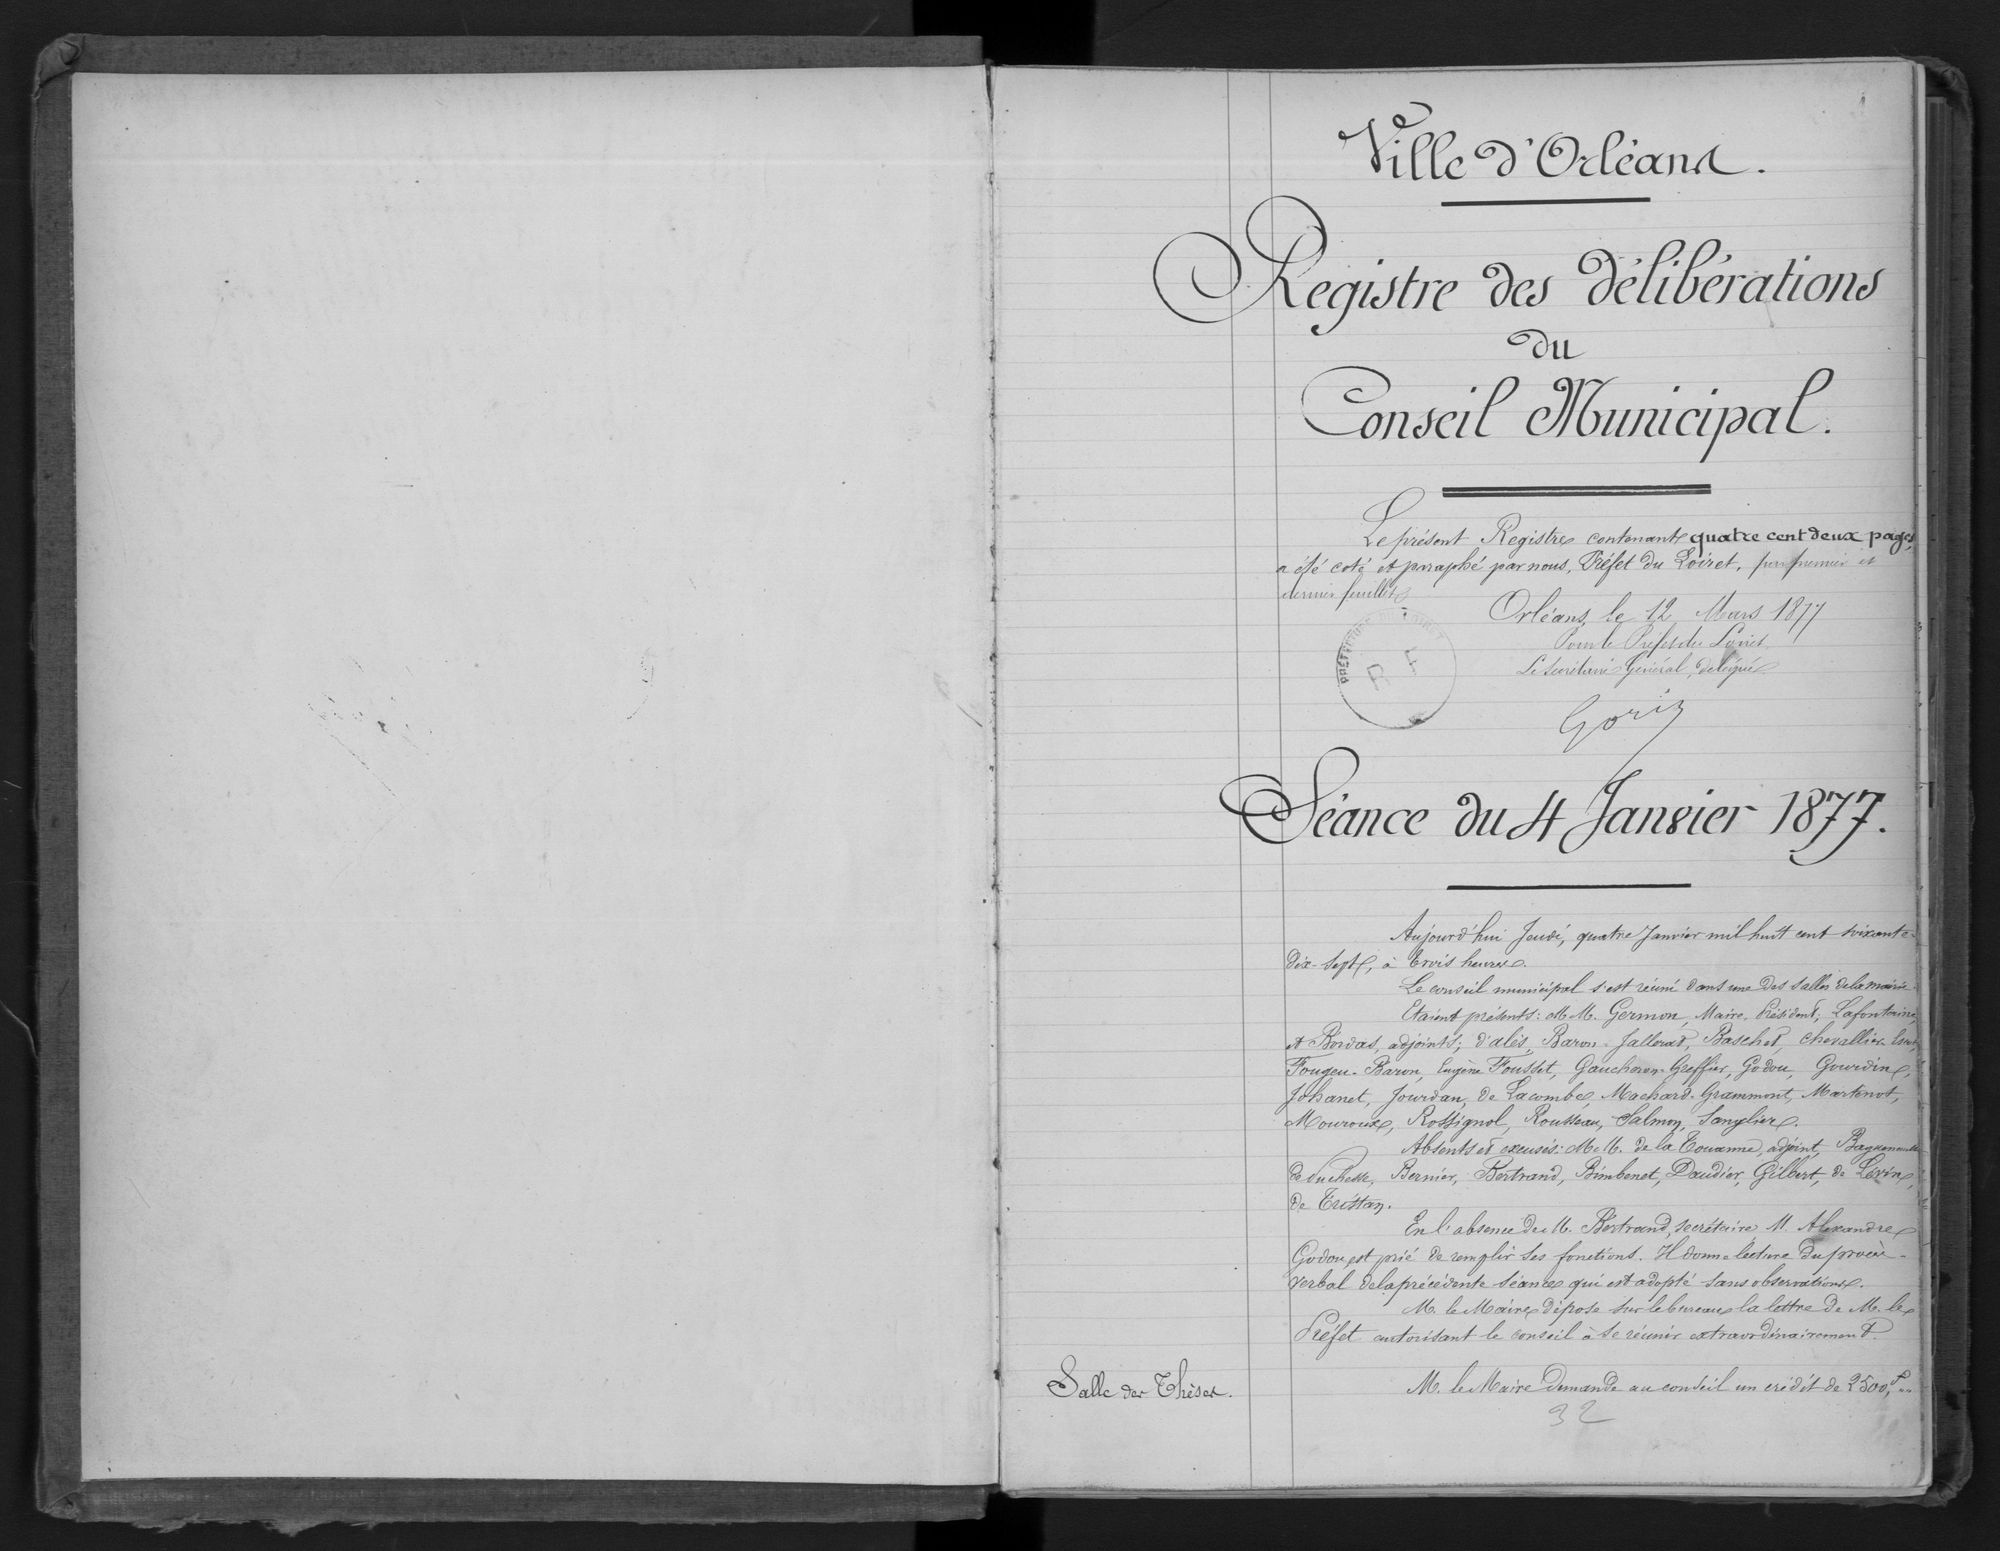 1
Ville d'Orléans.
Registre des délibérations
du
Conseil Municipal.
Le présent Registre contenant quatre cent deux pages,
a été coté et paraphé par nous, Préfet du Loiret, par premier et
dernier feuillet
Orléans, le 12 Mars 1877
Pour le Préfet du Loiret
Le Secrétaire Général, délégué
PRÉFECTURE DU LOIRET
R F
Goriz
Séance du 4 Janvier 1877.
Aujourd'hui Jeudi, quatre Janvier mil huit cent soixante-
dix-sept, à trois heures.
Le conseil municipal s'est réuni dans une des salles de la mairie
Etaient présents: MM. Germon, Maire, Président; Lafontaine,
et Bordas, adjoints; d'alès, Baron-Jallerat, Baschet, Chevallier
Fougeu-Baron, Eugène Fousset, Gaucheron-Greffier, Godou, Gourdin,
Johanet, Jourdan, de Lacombe, Machard-Grammont, Martenot,
Mouroux, Rossignol, Rousseau, Salmon, Sanglier.
Absents et excusés: MM. de la Touanne, adjoint,
Duchesse, Bernier, Bertrand, Bimbenet, Daudier, Gilbert, de
de Tristan.
En l'absence de M. Bertrand, secrétaire M. Alexandre
Godou est prié de remplir ses fonctions. Il donne lecture du procès-
verbal de la précédente séance qui est adopté sans observations.
M. le Maire dépose sur le bureau la lettre de M. le
Préfet autorisant le conseil à se réunir extraordinairement.
Salle des Thèses.
M. le Maire demande au conseil un crédit de 2500,f ..
32